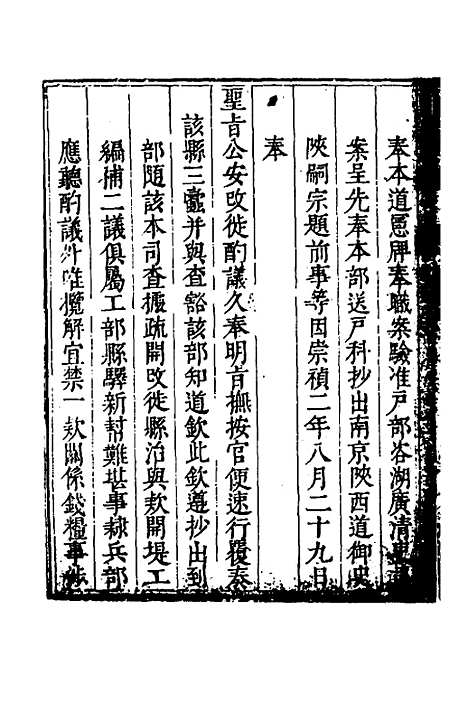 奉本道憲牌奉職案驗准戶部咨湖廣清吏司
案呈先奉本部送戶科抄出南京陝西道御史
陳嗣宗題前事等因崇禎二年八月二十九日
奉
聖旨公安改徙酌議久奉明旨撫按官便速行覆奏
該縣三蠹并與查豁該部知道欽此欽遵抄出到
部隨該本司查據疏開改徙縣治與欵開堤工
編補二議俱屬工部縣驛新幇難堪事隸兵部
應聽酌議外唯攬解宜禁一欵關係錢糧事